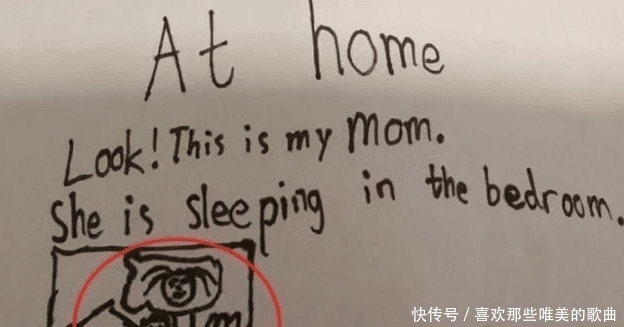 At home
Look! This is my mom.
She is sleeping in the bedroom.
快传号/喜欢那些唯美的歌曲